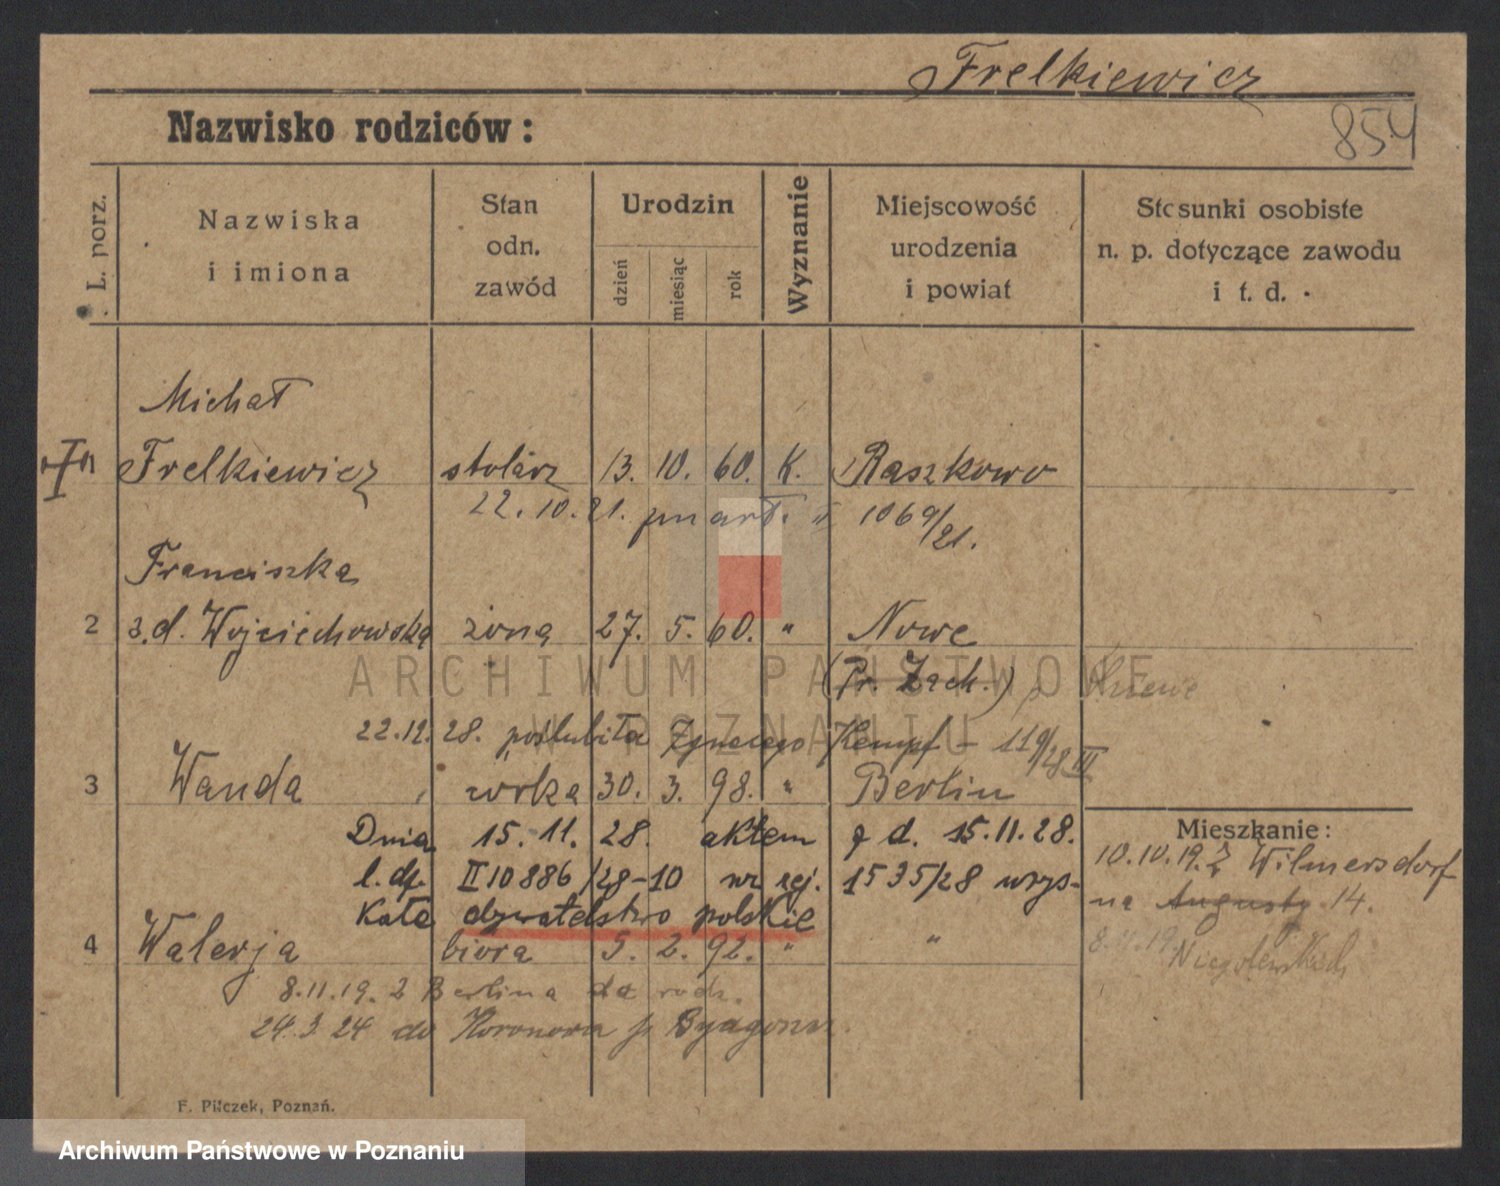 Frelkiewicz
Nazwisko rodziców:
854
L. porz.
Nazwiska
i imiona
Stan
odn.
zawód
Urodzin
dzień
miesiąc
rok
Wyznanie
Miejscowość
urodzenia
i powiat
Stosunki osobiste
n. p. dotyczące zawodu
i t. d.
Michał
Frelkiewicz stolarz 13. 10. 60. K. Raszkowo
22. 10. 21. art. 1069/21.
Franciszka
2 z.d. Wojciechowska żona 27. 5. 60. " Nowe
(Pr. Zach.)
22.12.28. poślubiła Ignacego Kempf - 119/28 III
3 Wanda córka 30. 3. 98. " Berlin
Dnia 15. 11. 28. aktem z d. 15.11.28.
l. dz. II 10886/28-10 nr rej. 1535/28 uzys-
kała obywatelstwo polskie
4 Walerja biora 5. 2. 92. " "
8.11.19. z Berlina do rodz.
24.3.24 do Koronowa p. Bydgoszcz.
Mieszkanie:
10.10.19. z Wilmersdorf
na Augusty 14.
8.11.19. Niegolewskich
F. Pilczek, Poznań.
ARCHIWUM PAŃSTWOWE
W POZNANIU
Archiwum Państwowe w Poznaniu